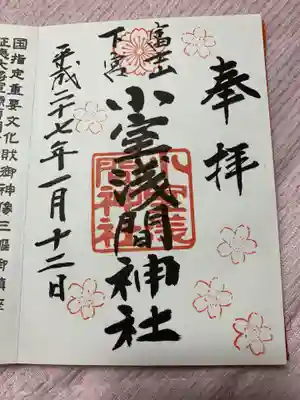 奉拝
富士山
下宮
小室浅間神社
平成二十七年一月十二日
国指定重要文化財御神像三軀御鎮座